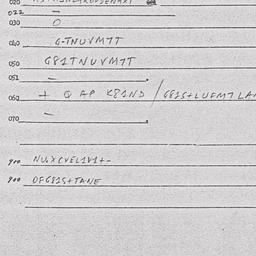 022 -
030 O
040 G-TNUVM7T
050 G81TNUVM7T
051 -
060 + Q AP K81ND / G81S+LUFM7LA
070 -
900 NUXCVEL1V1+-
900 OFG81S+TANE